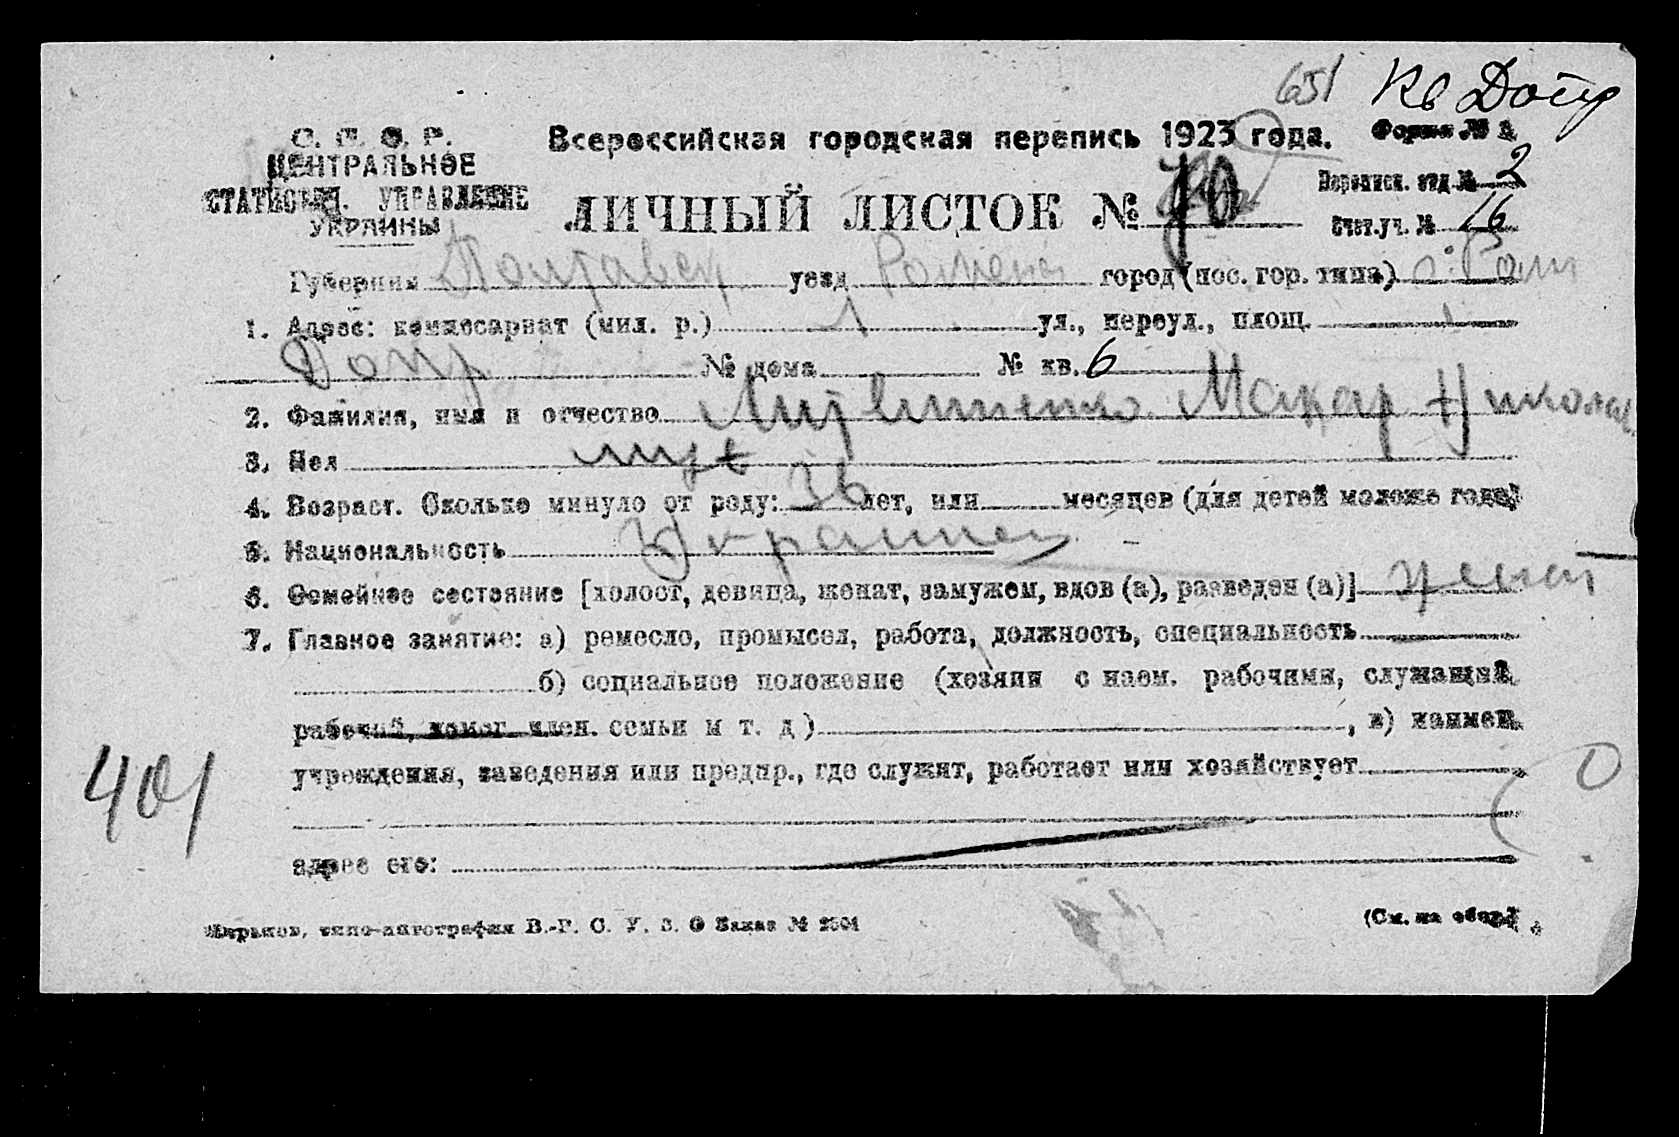 651 Кв Допр
С. С. С. Р. Всероссийская городская перепись 1923 года. Форма №
ЦЕНТРАЛЬНОЕ
СТАТИСТИЧ. УПРАВЛЕНИЕ
УКРАИНЫ
ЛИЧНЫЙ ЛИСТОК № 70
Переписн. отд. № 2
Счет.уч. № 16
Губерния Полтавск уезд Роменск город (пос. гор. типа) г. Ром
1. Адрес: комиссариат (мил. р.) 1 ул., переул., площ.
Допр № дома № кв. 6
2. Фамилия, имя и отчество Литвиненко Макар Николаев
3. Пол муж
4. Возраст. Сколько минуло от роду: 36 лет, или месяцев (для детей моложе года)
5. Национальность Украинец
6. Семейное состояние [холост, девица, женат, замужем, вдов (а), разведен (а)] женат
7. Главное занятие: а) ремесло, промысел, работа, должность, специальность
б) социальное положение (хозяин с наем. рабочими, служащий,
рабочий, помог. член. семьи и т. д.) , в) наимен.
учреждения, заведения или предпр., где служит, работает или хозяйствует
401 0
адрес его:
Харьков, типо-литография В.-Р. С. У. З. О Заказ № (См. на обор.)